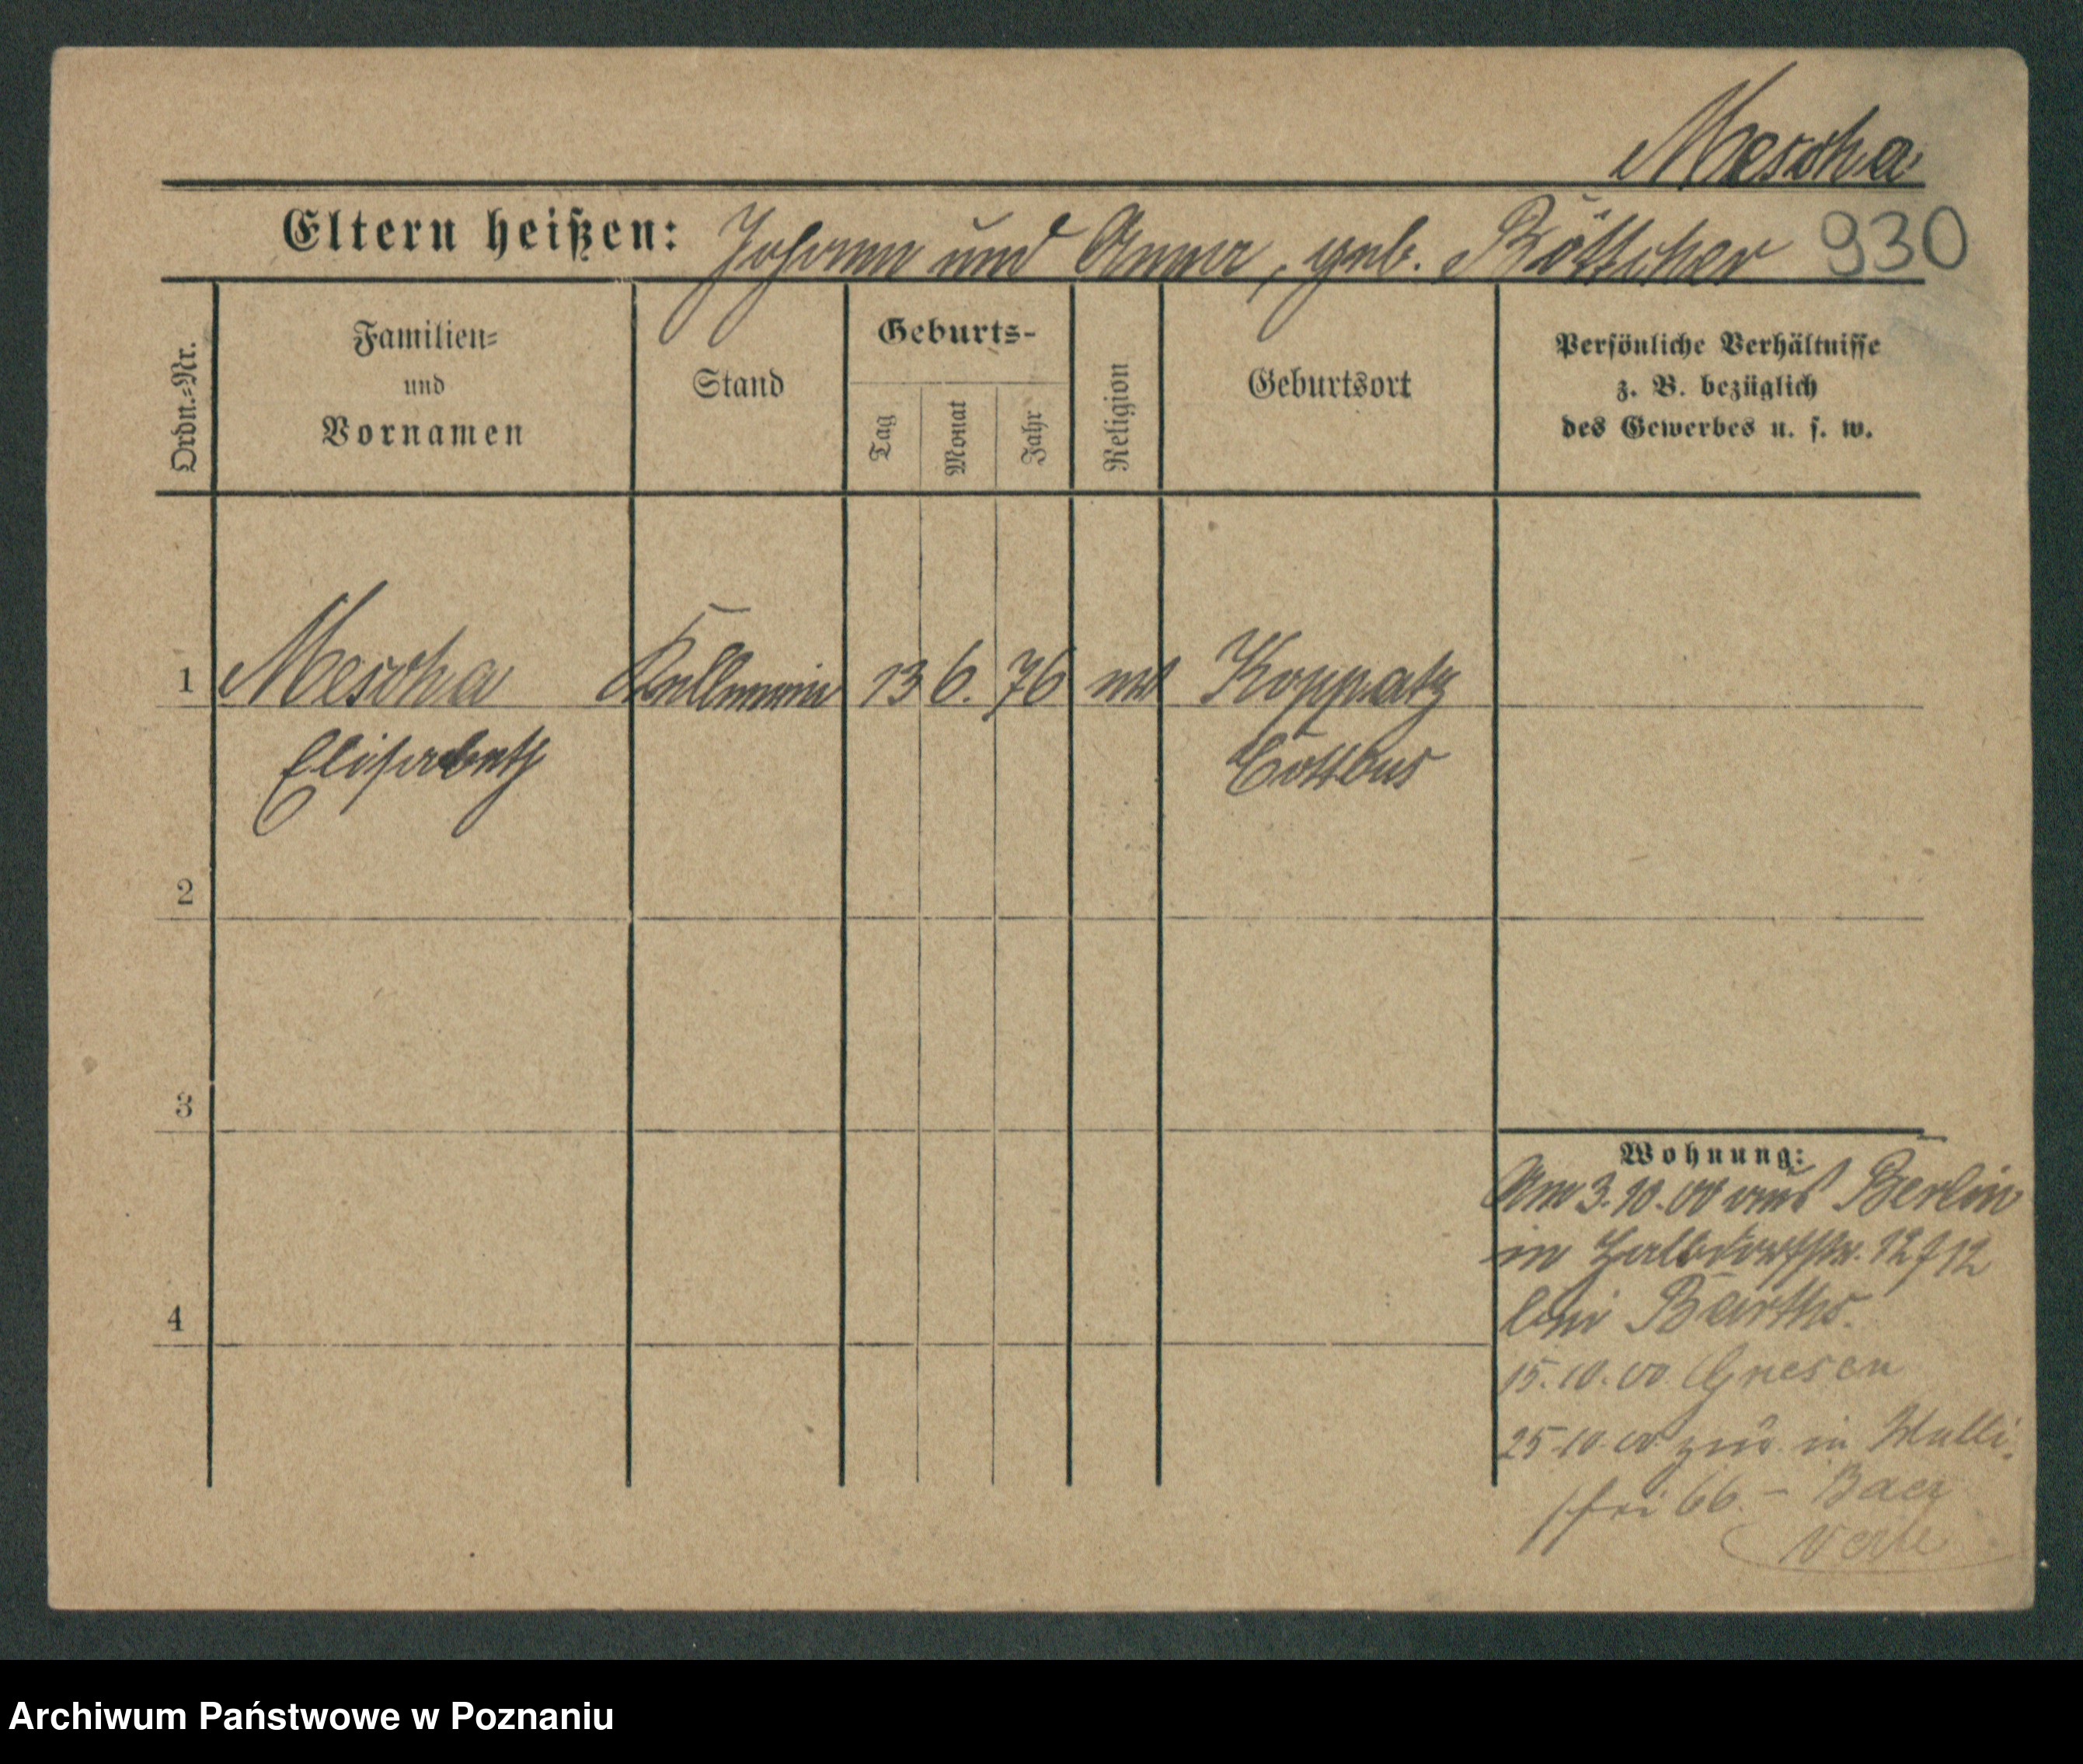 Mescha
Eltern heißen: Johann und Anna, geb. Böttcher 930
Ordn.-Nr.
Familien-
und
Vornamen
Stand
Geburts-
Tag
Monat
Jahr
Religion
Geburtsort
Persönliche Verhältnisse
z. B. bezüglich
des Gewerbes u. s. w.
1 Mescha Kellnerin 13 6. 76 Koppatz
Elisabeth Cottbus
2
3
4
Wohnung:
Am 3.10.00 aus Berlin
in Halbdorfstr. 12
bei Barths.
15.10.00 Gnesen
25.10.00 zur. in
66. – Baer
Archiwum Państwowe w Poznaniu